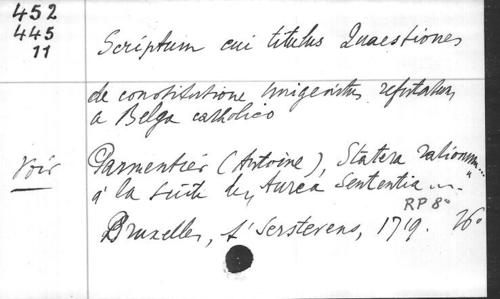 452
445
11
Scriptum cui titulus Quaestiones
de constitutione Unigenitus refutatum
a Belga catholico
Voir
Parmentier (Antoine), Statera rationum..."
à la suite de "Aurea Sententia ..."
RP 8°
Bruxelles, t'Serstevens, 1719. 26°